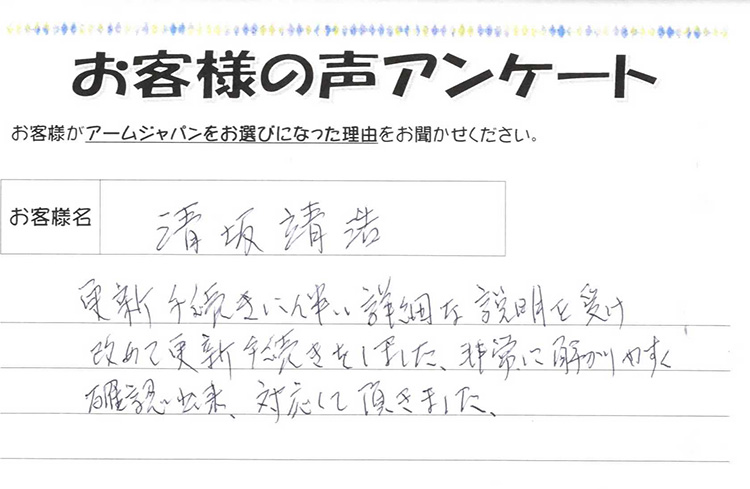 お客様の声アンケート
お客様がアームジャパンをお選びになった理由をお聞かせください。
お客様名
清坂靖浩
更新手続きに伴い詳細な説明を受け
改めて更新手続きをしました、非常に解かりやすく
確認出来、対応して頂きました、